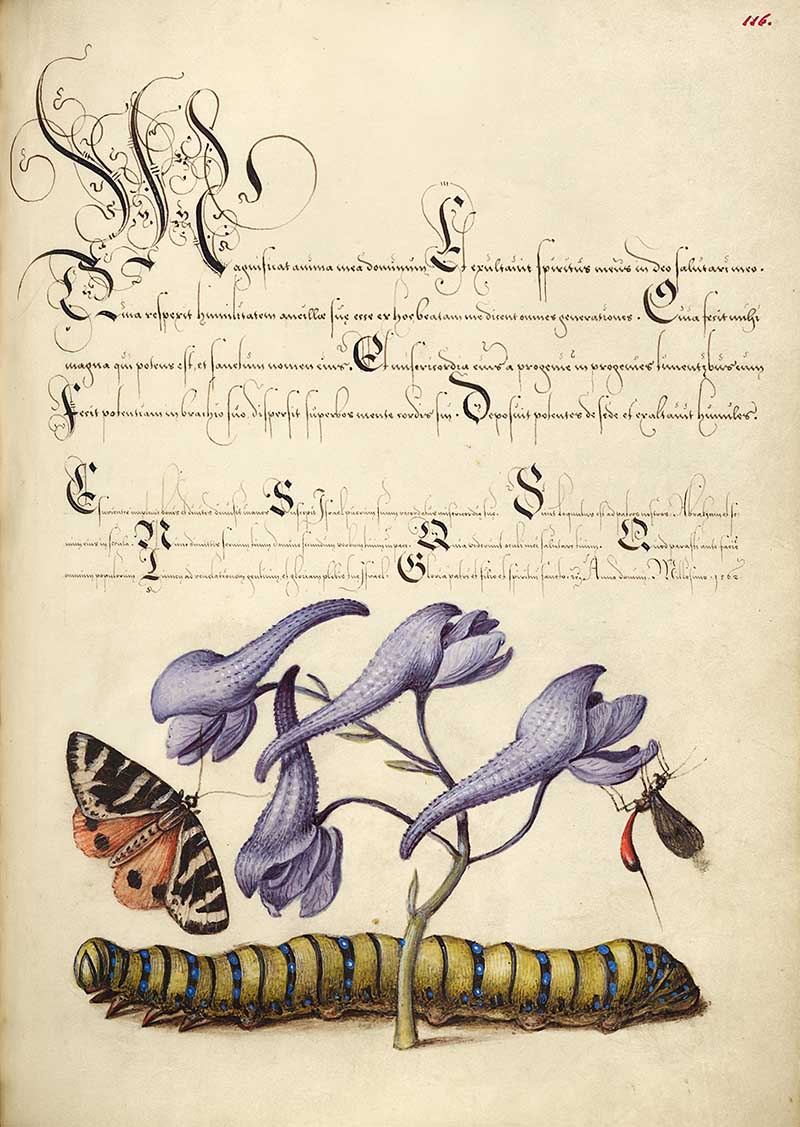 116.
Magnificat anima mea dominum Et exultavit spiritus meus in deo salutari meo.
Quia respexit humilitatem ancillæ suę ecce ex hoc beatam me dicent omnes generationes. Quia fecit mihi
magna qui potens est, et sanctum nomen eius. Et misericordia eius a progenie in progenies timentibus eum
Fecit potentiam in brachio suo, dispersit superbos mente cordis sui. Deposuit potentes de sede et exaltavit humiles.
Esurientes implevit bonis et divites dimisit inanes Suscepit Israel puerum suum recordatus misericordię suę. Sicut loquutus est ad patres nostros. Abraham et se
mini eius in secula. Nunc dimittis servum tuum domine secundum verbum tuum in pace. Quia viderunt oculi mei salutare tuum. Quod parasti ante faciē
omnium populorum Lumen ad revelationem gentium, et gloriam plebis tuę Israel. Gloria patri et filio et spiritui sancto. Anno domini. Millesimo. 1562